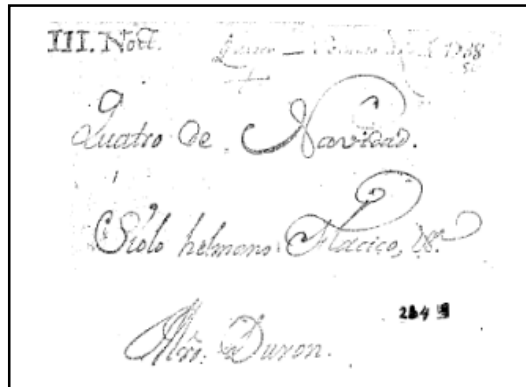 III. Noct.
Quatro de Navidad.
Siolo helmano Flacico, &.
264
Mro. Duron.